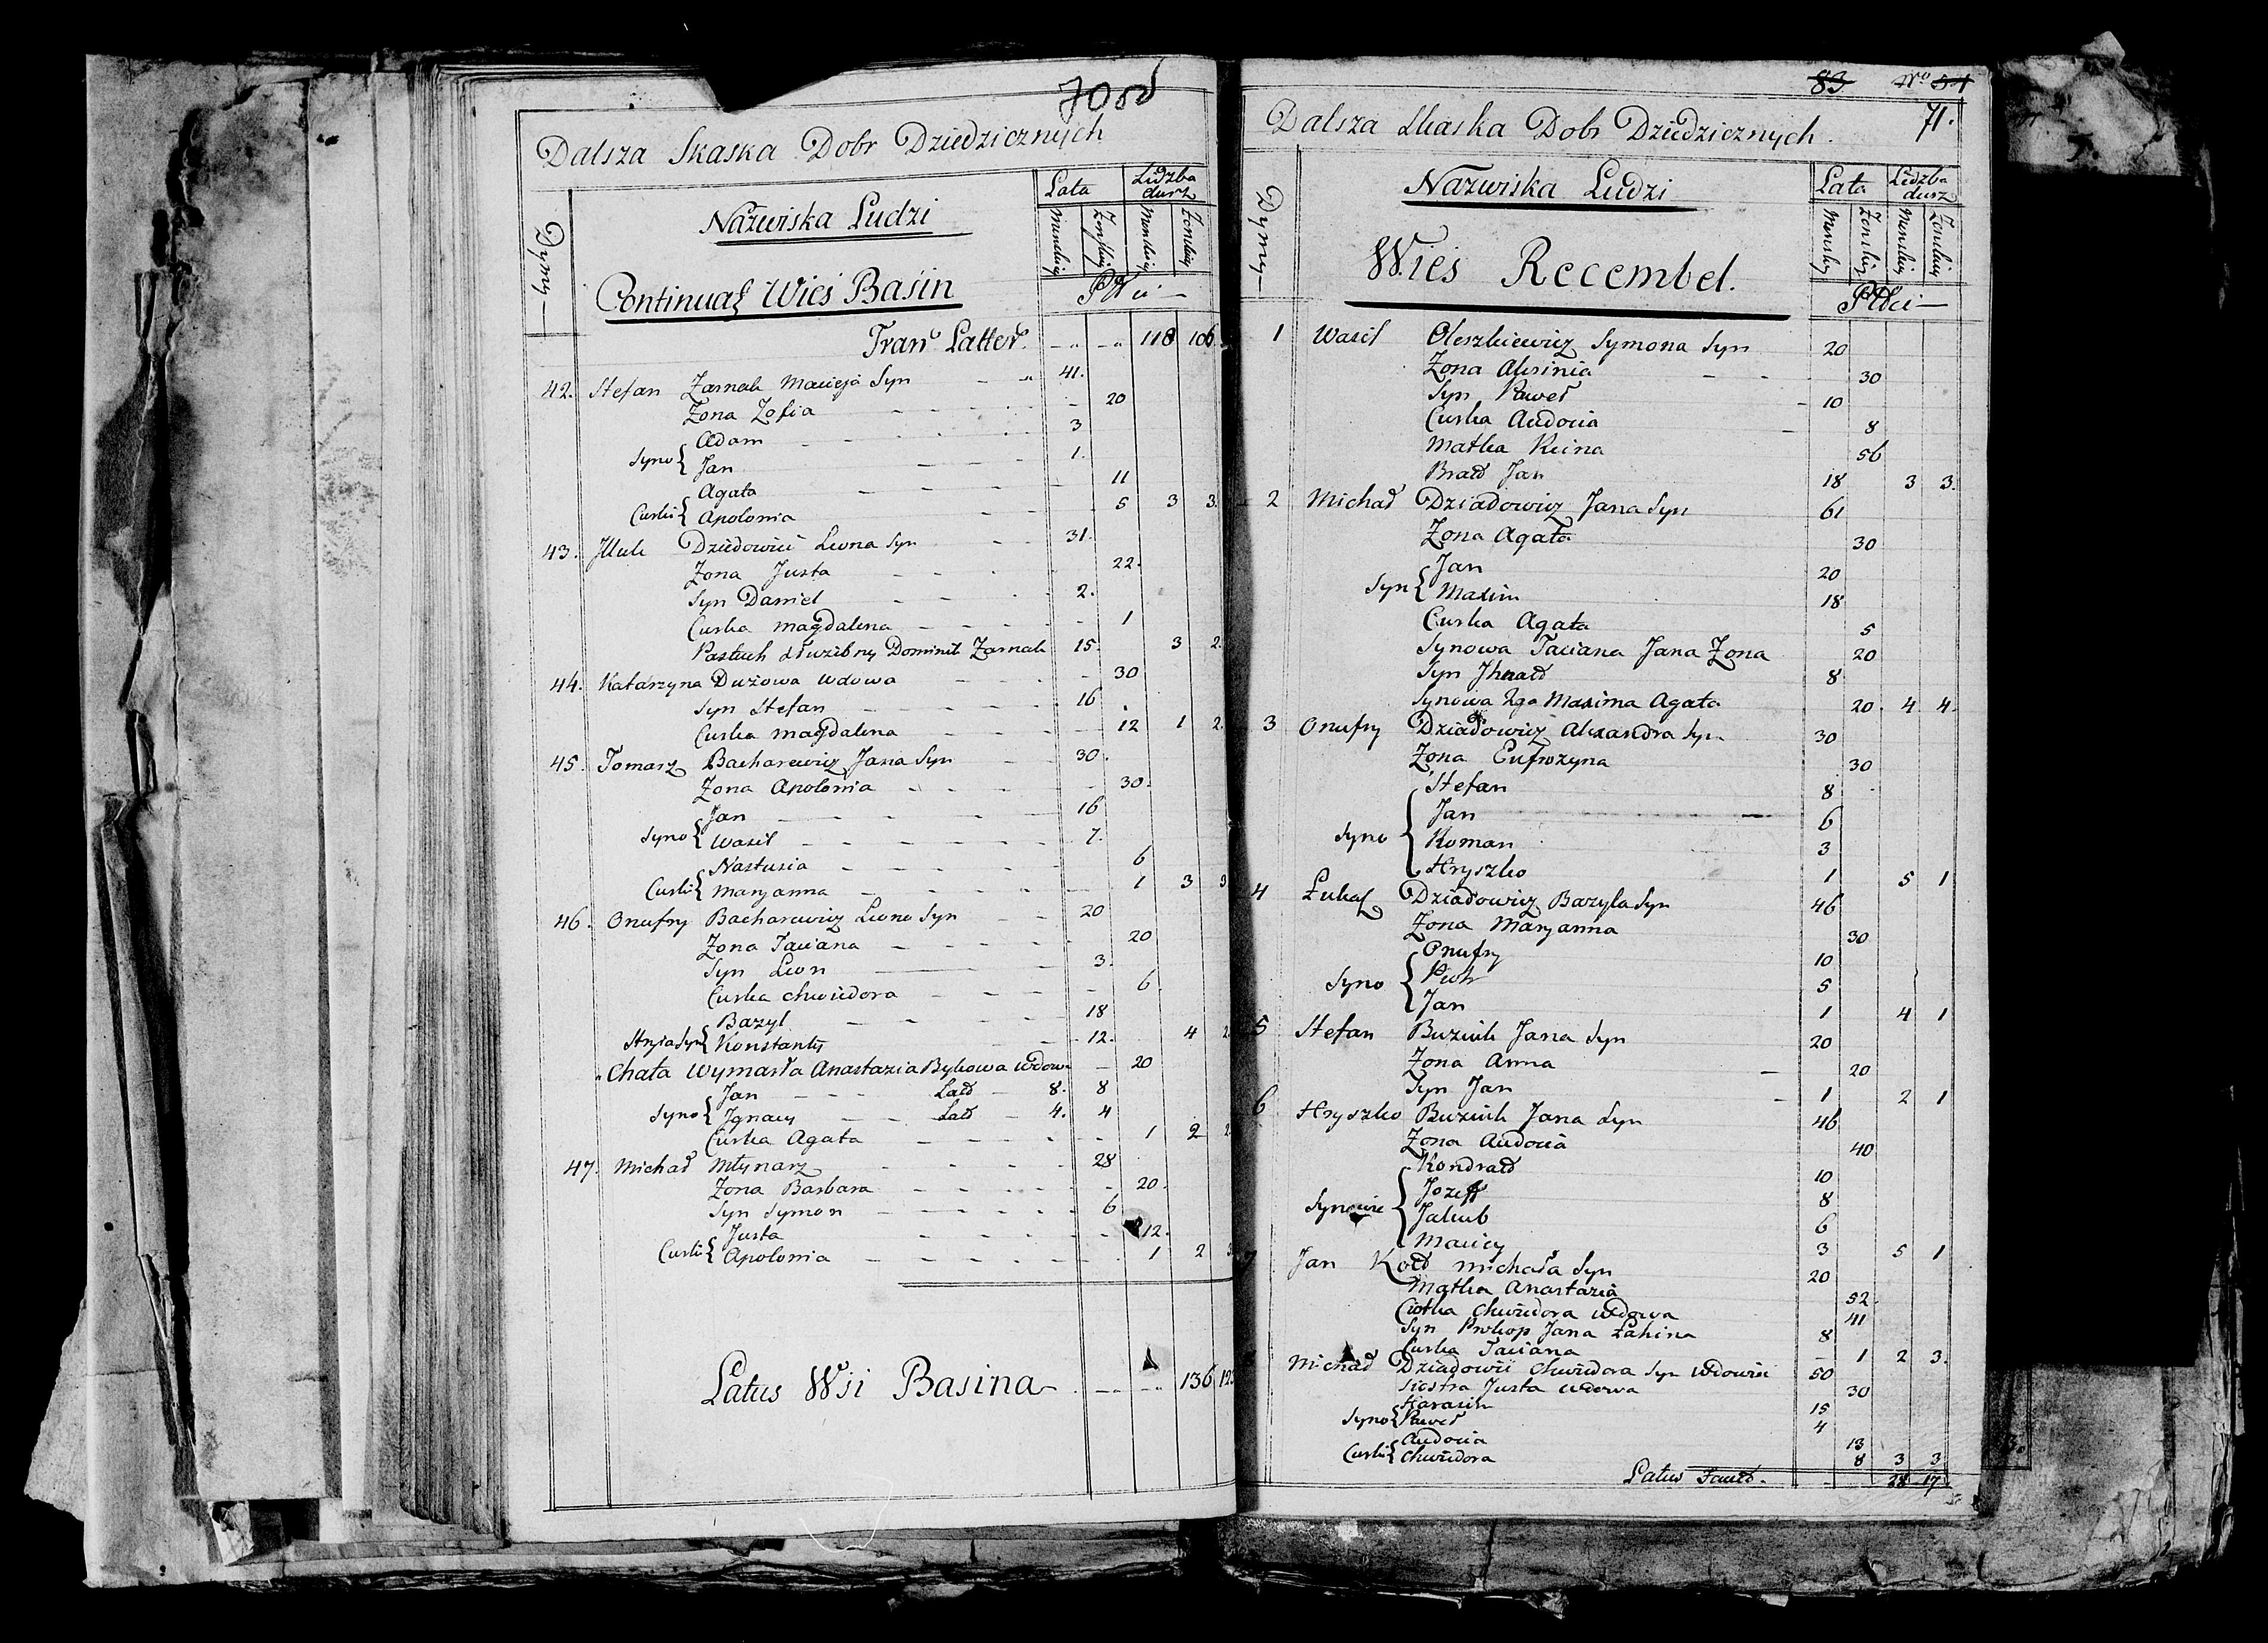 70 od
Dalsza Skaska Dobr Dziedzicznych
Dymy
Nazwiska Ludzi
Lata
Liczba dusz
Continuat Wieś Basin
Płci
Tran Latter. 118 106
42. Stefan Zarnak Macieja Syn 41.
Zona Zofia 20
Syno { Adam 3
Jan 1.
Curki { Agata 11
Apolonia 5 3 3.
43. Dziedowicz Leona Syn 31.
Zona Justa 22.
Syn Daniel 2.
Curka Magdalena 1
Pastuch służebny Dominik Zarnak 15. 3 2.
44. Katarzyna Dużowa Wdowa 30
Syn Stefan 16
Curka Magdalena 12 1 2.
45. Tomasz Bacharewicz Jana Syn 30.
Zona Apolonia 30.
Syno { Jan 16
Wasil 7.
Curki { Nastusia 6
Maryanna 1 3 3
46. Onufry Bacharewicz Leona Syn 20
Zona Taciana 20
Syn Leon 3.
Curka Chwiedora 6.
Bazyl 18
Konstanty 12. 4 2
Chata Wymarła Anastazia Bykowa Wdowa 20
Syno { Jan Lat 8. 8
Ignacy Lat 4. 4
Curka Agata 1 2 2
47. Michał Młynarz 28
Zona Barbara 20.
Syn Symon 6
Curki { Justa 12.
Apolonia 1 2 3
Latus Wsi Basina 136
83 No 54
71.
Dalsza Skaska Dobr Dziedzicznych.
Dymy
Nazwiska Ludzi
Lata
Liczba dusz
Wieś Recembel.
Płci
1 Wasil Oleszkiewicz Symona Syn 20
Zona Aksinia 30
Syn Paweł 10
Curka Audocia 8
Matka 56
Brat Jan 18 3 3.
2 Michał Dziadowicz Jana Syn 61
Zona Agata 30
Syn { Jan 20
Maxim 18
Curka Agata 5
Synowa Taciana Jana Zona 20
Syn Ihnat 8
Synowa 2ga Maxima Agata 20. 4 4.
3 Onufry Dziadowicz Alexandra Syn 30
Zona Eufrozyna 30
Syno { Stefan 8
Jan 6
Roman 3
Hryszko 1 5 1
4 Łukasz Dziadowicz Bazyla Syn 46
Zona Maryanna 30
Syno { Onufry 10
Piotr 5
Jan 1 4 1
5 Stefan Buziuk Jana Syn 20
Zona Anna 20
Syn Jan 1 2 1
6 Hryszko Buziuk Jana Syn 46
Zona Audocia 40
Synowie { Kondrat 10
Jozeff 8
Jakub 6
Maciey 3 5 1
7 Jan Kot Michała Syn 20
Matka Anastazia 52.
Ciotka Chwiedora Wdowa 41
Syn Prokop Jana 8
Curka Taciana 1 2 3.
Michał Dziadowicz Chwiedora Syn Wdowiec 50
Siostra Justa Wdowa 30
Syno { Harasim 15
Paweł 4
Curki { Audocia 13
Chwiedora 8 3 3
Latus Facit. 28 17